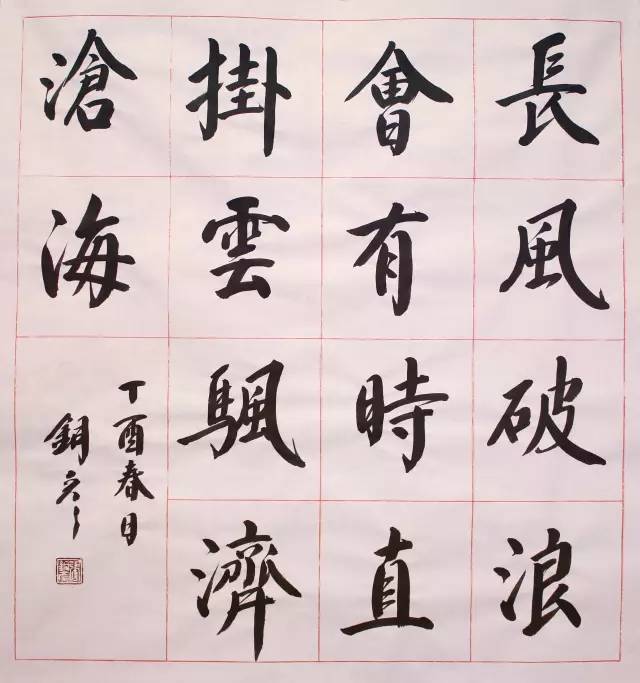 長風破浪
會有時直
掛雲颿濟
滄海
丁酉春日